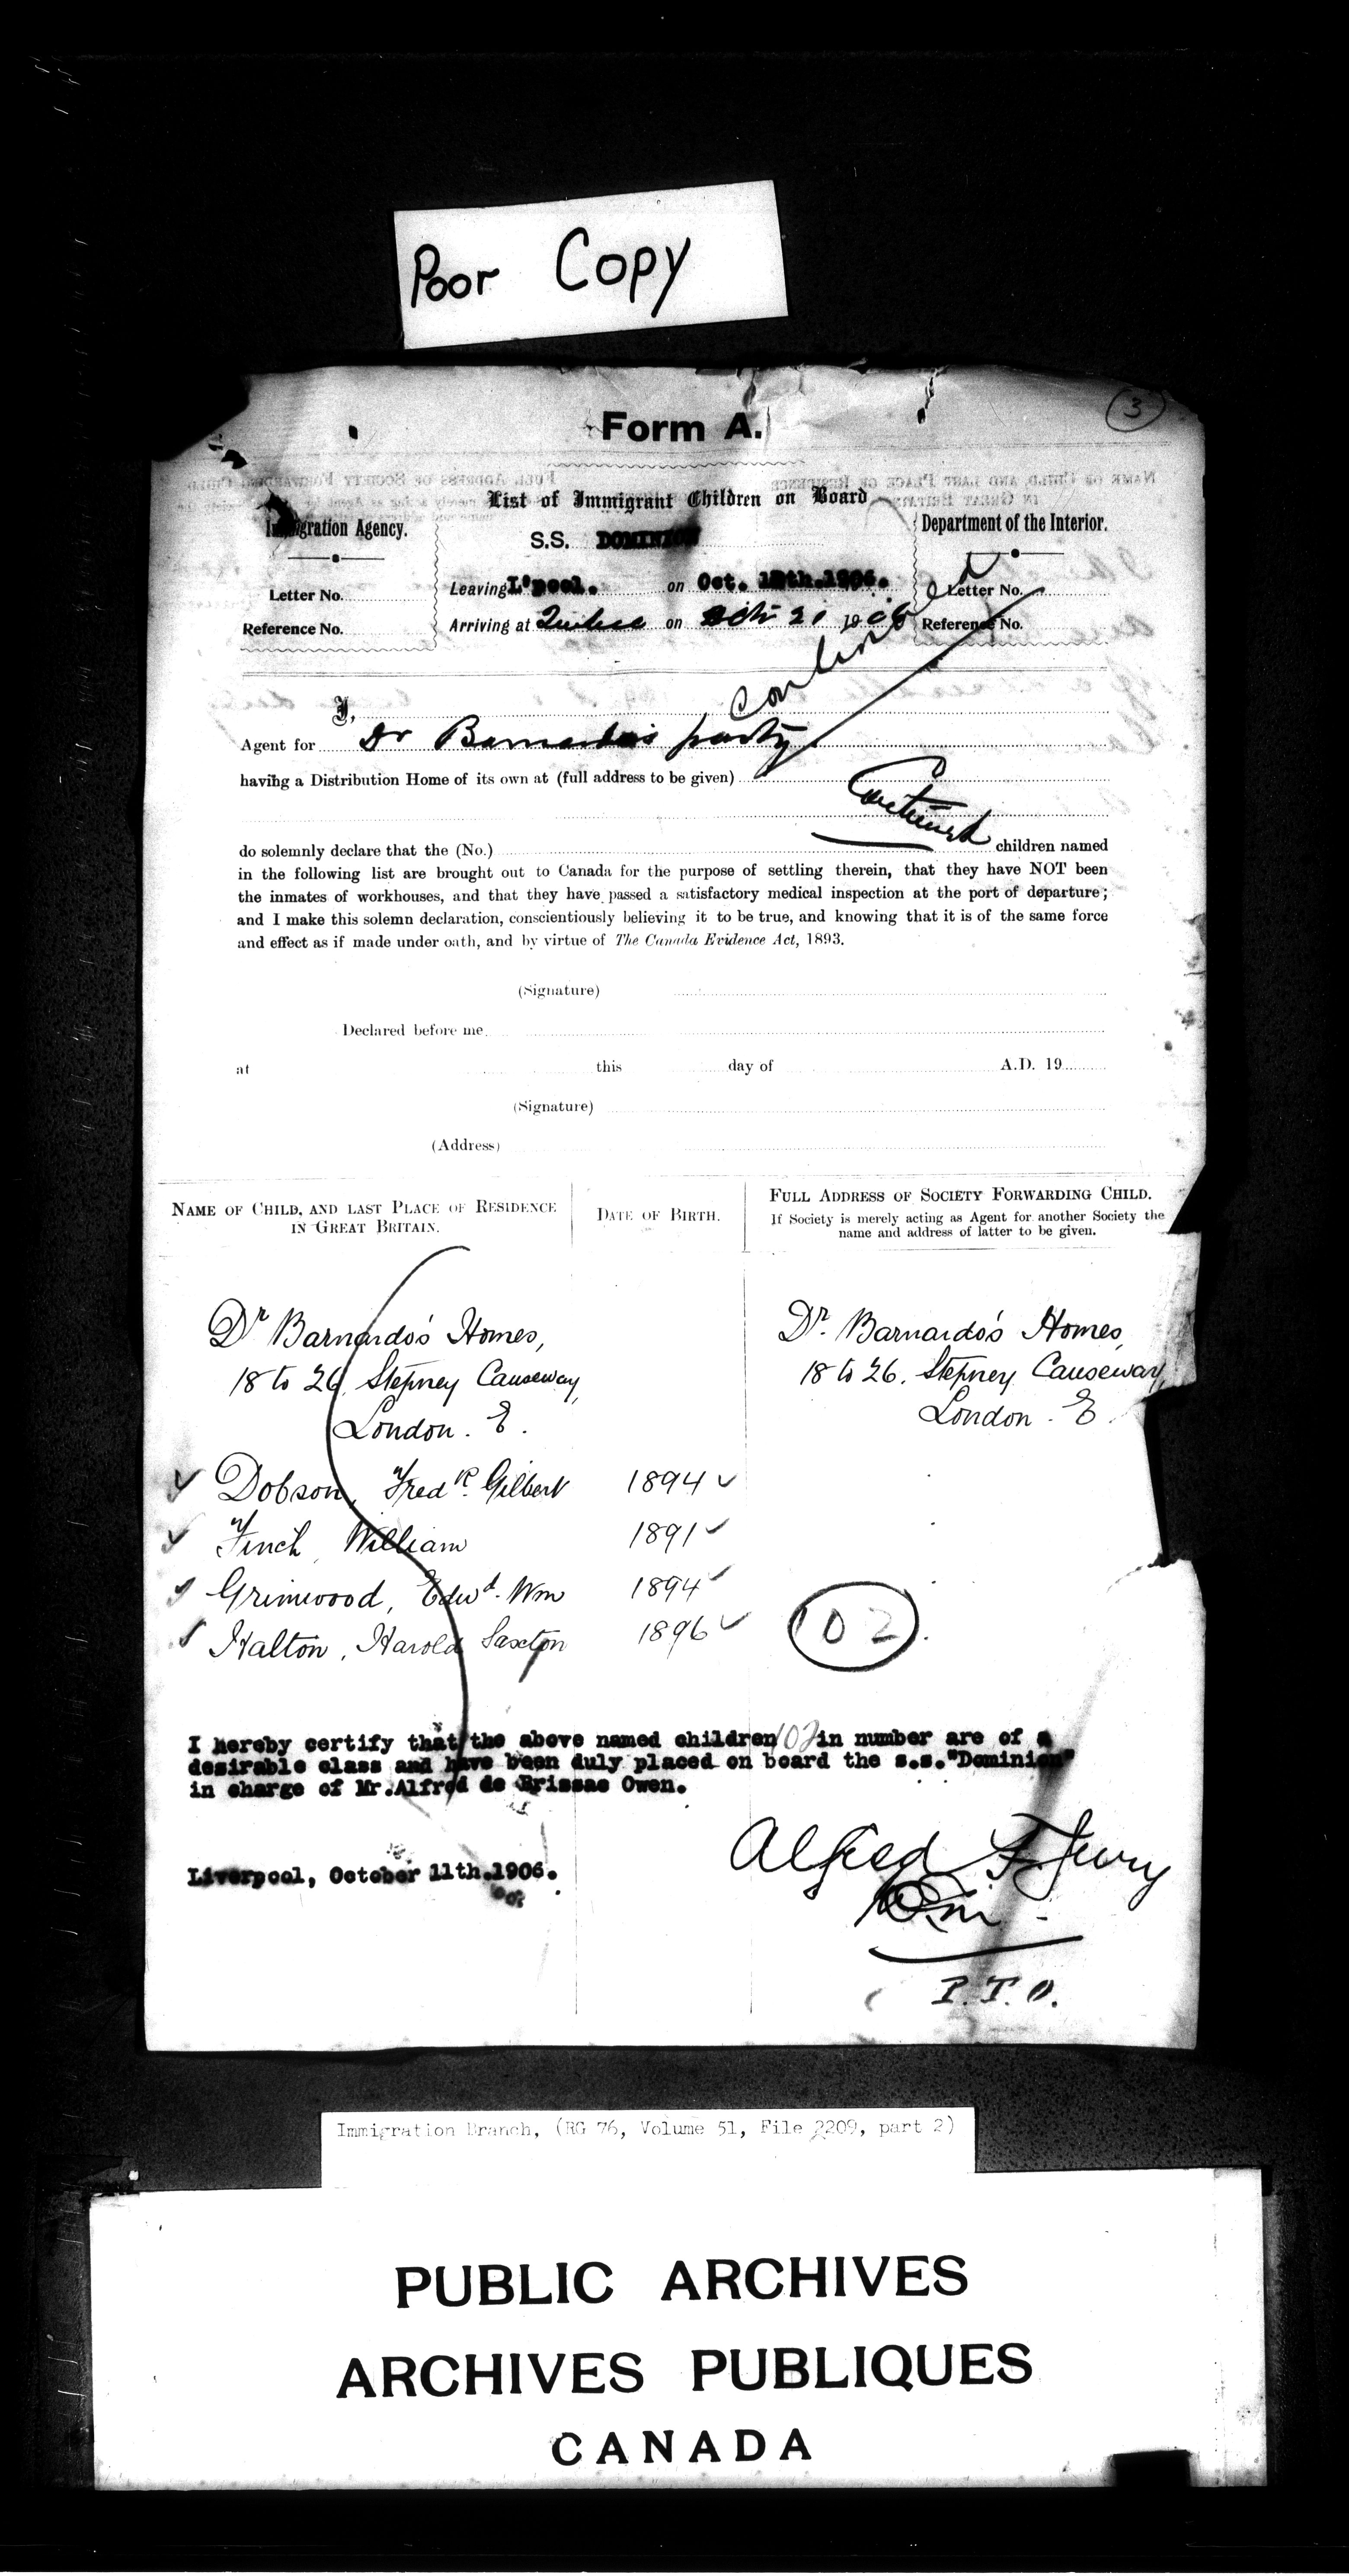 Poor Copy
3
Form A.
List of Immigrant Children on Board
Immigration Agency.
S.S. DOMINION
Department of the Interior.
Letter No.
Leaving L'pool. on Oct. 12th.1906.
Letter No.
Reference No.
Arriving at Quebec on Oct 21 1906
Reference No.
Continued
I,
Agent for Dr Barnardo's party
having a Distribution Home of its own at (full address to be given)
Continued
do solemnly declare that the (No.) children named
in the following list are brought out to Canada for the purpose of settling therein, that they have NOT been
the inmates of workhouses, and that they have passed a satisfactory medical inspection at the port of departure;
and I make this solemn declaration, conscientiously believing it to be true, and knowing that it is of the same force
and effect as if made under oath, and by virtue of The Canada Evidence Act, 1893.
(Signature)
Declared before me
at this day of A.D. 19
(Signature)
(Address)
NAME OF CHILD, AND LAST PLACE OF RESIDENCE
IN GREAT BRITAIN.
DATE OF BIRTH.
FULL ADDRESS OF SOCIETY FORWARDING CHILD.
If Society is merely acting as Agent for another Society the
name and address of latter to be given.
Dr Barnardo's Homes,
18 to 26, Stepney Causeway,
London. E.
Dr. Barnardo's Homes,
18 to 26, Stepney Causeway,
London. E.
Dobson, Fredk. Gilbert 1894
Finch, William 1891
Grimwood, Edwd. Wm 1894
Halton, Harold Saxton 1896
102
I hereby certify that the above named children 102 in number are of a
desirable class and have been duly placed on board the s.s."Dominion"
in charge of Mr.Alfred de Brissac Owen.
Alfred F. Jury
Liverpool, October 11th.1906.
P.T.O.
Immigration Branch, (RG 76, Volume 51, File 2209, part 2)
PUBLIC ARCHIVES
ARCHIVES PUBLIQUES
CANADA